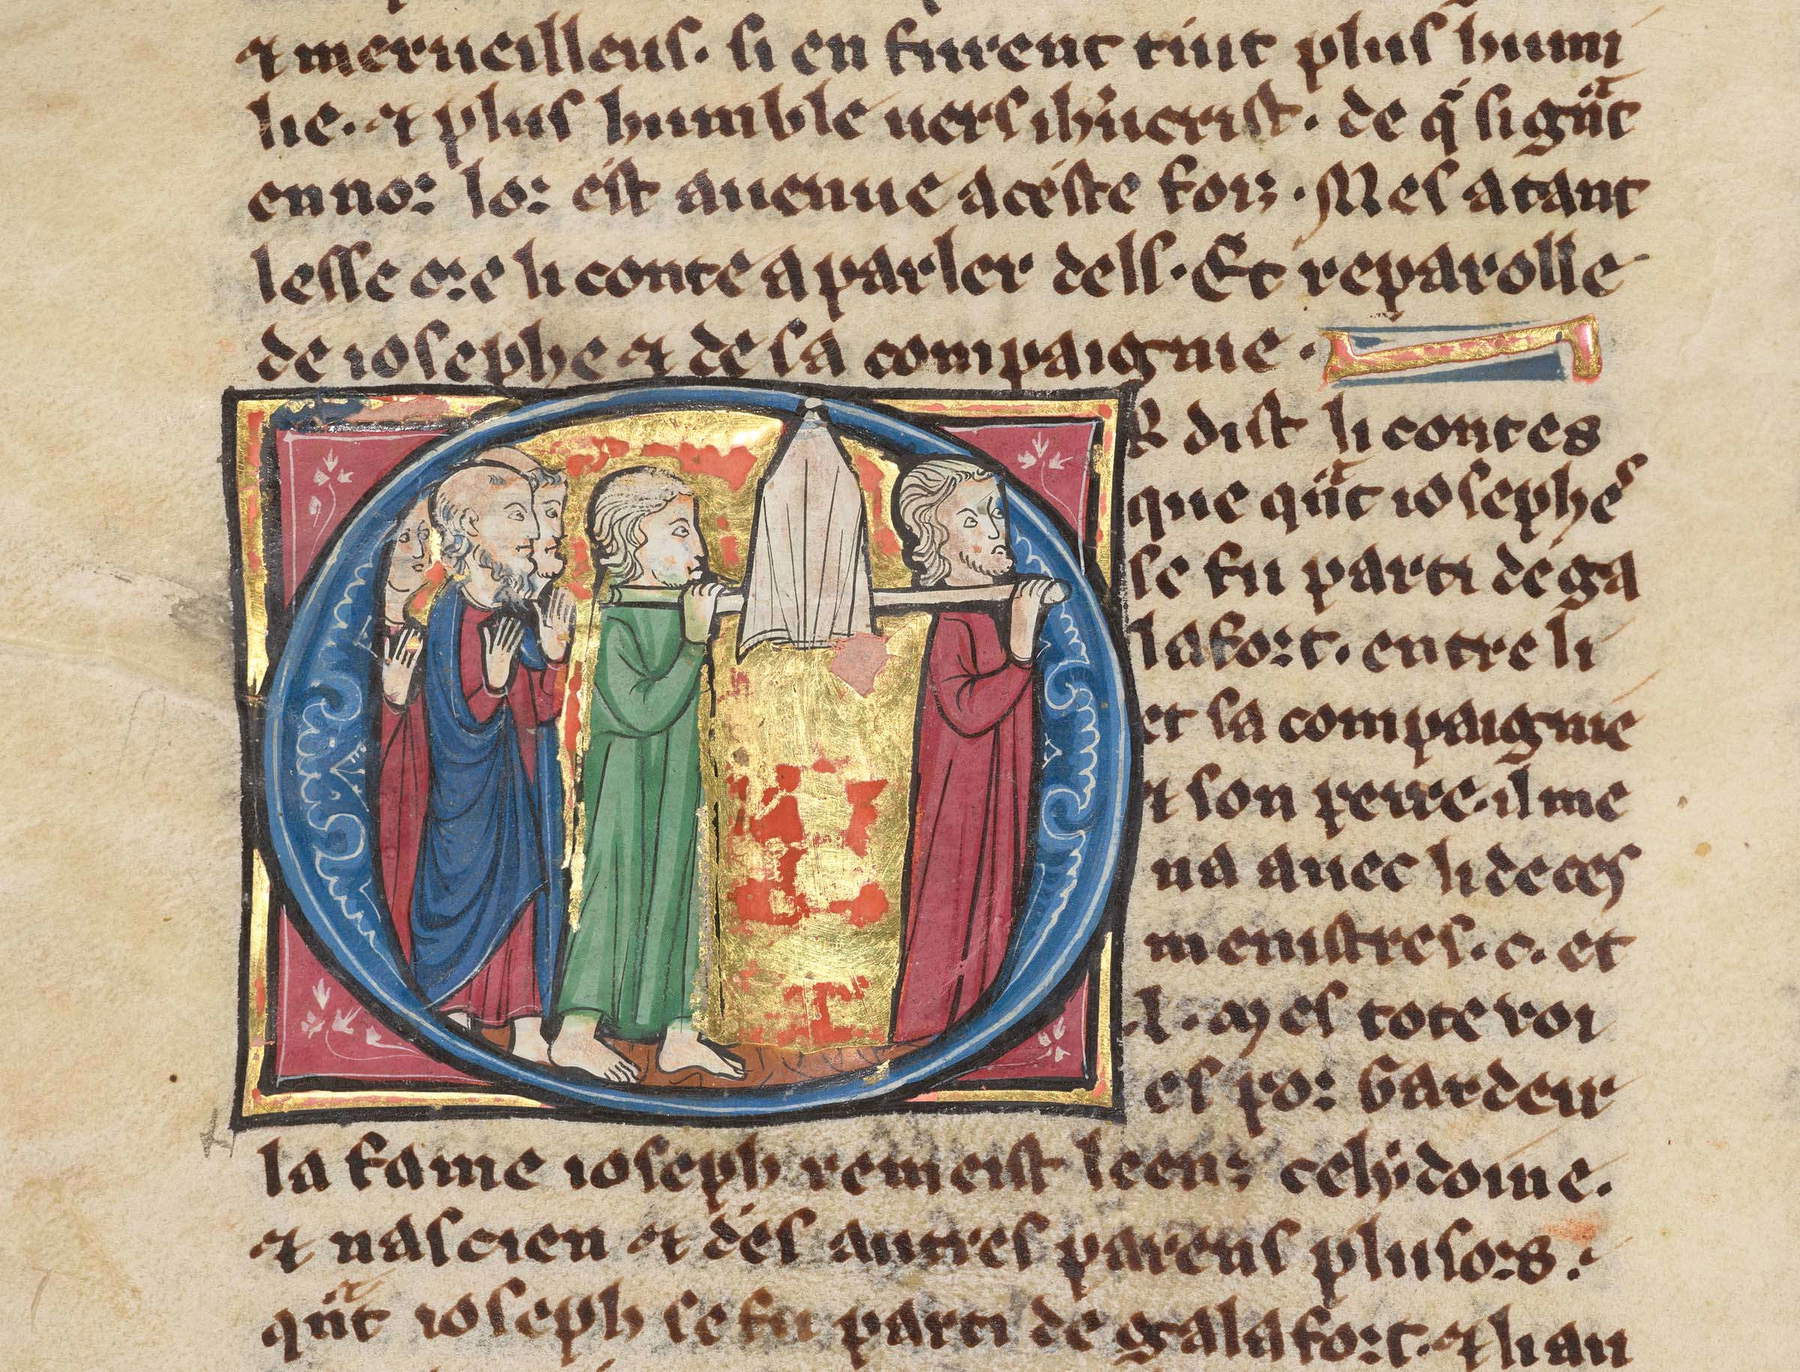 ⁊ merueilleus. si en furent tuit plus humi
lie. ⁊ plus humble uers ihũcrist. de q̃ si gñt
ennor lor est auenue a ceste fois. Mes atant
lesse ore li conte a parler dels. Et reparolle
de iosephe ⁊ de sa compaignie.
OR dist li contes
que qñt iosephes
se fu parti de ga
lafort. entre li
et sa compaignie
⁊ son perre. il me
na auec li de ces
menistres. c. et
.l. Mes tote uoi
es por Gardeir
la fame ioseph remeist leenz celydoine.
⁊ nascien ⁊ des autres parens plusors.
qñt ioseph se fu parti de galafort. ⁊ li au